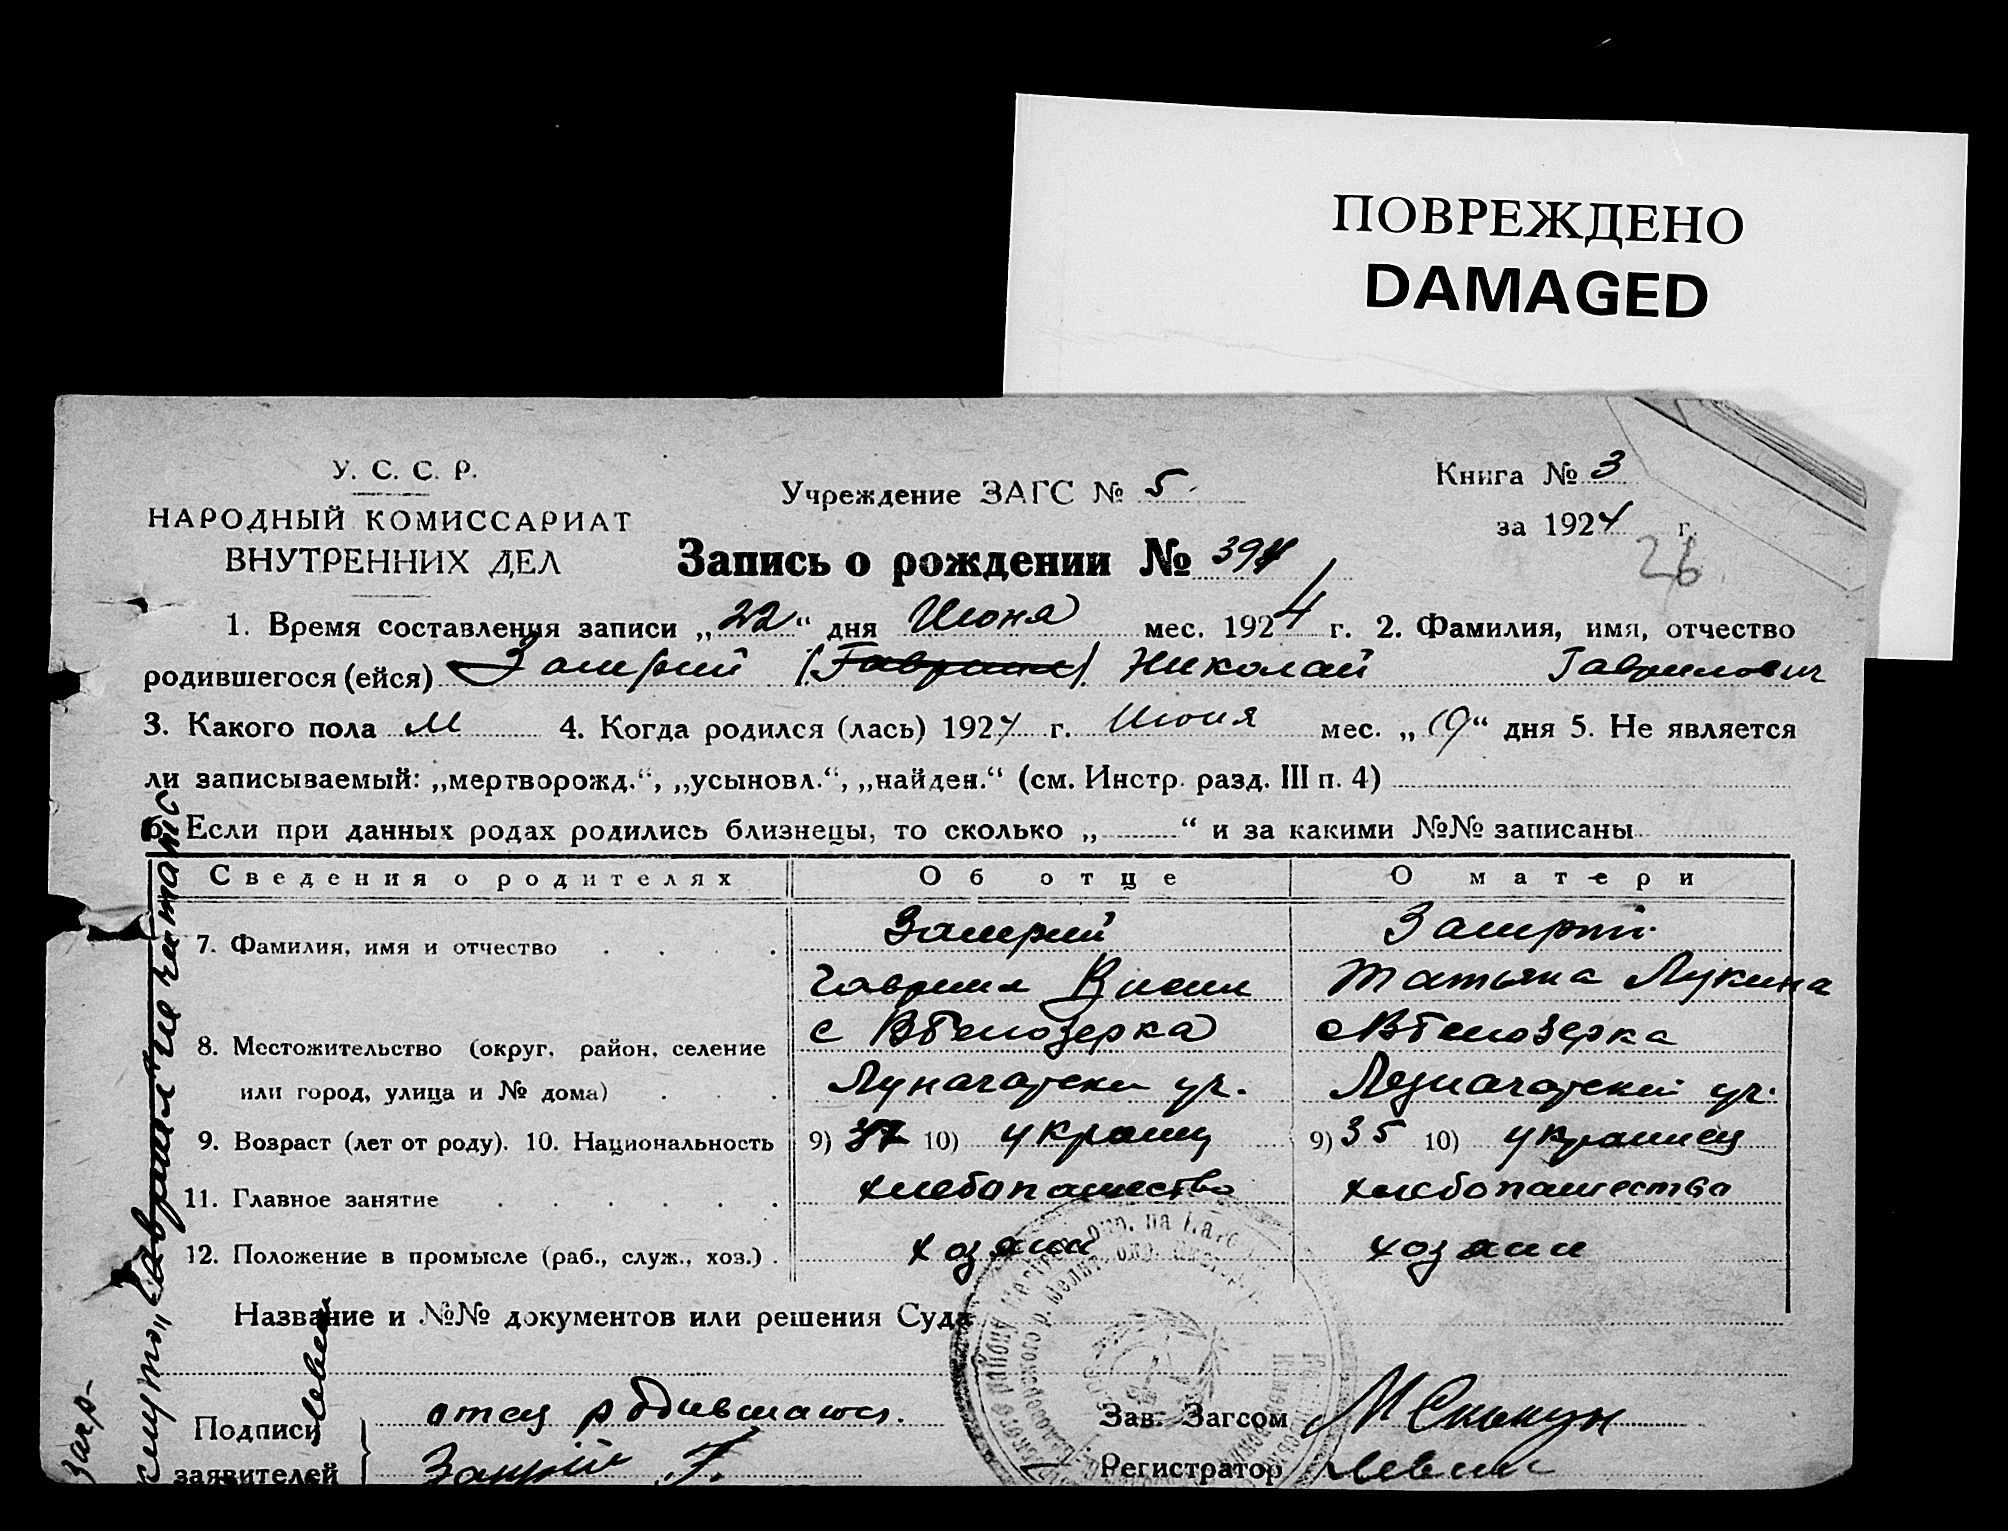 ПОВРЕЖДЕНО
DAMAGED
У. С. С. Р.
НАРОДНЫЙ КОМИССАРИАТ
ВНУТРЕННИХ ДЕЛ
Учреждение ЗАГС № 5
Книга № 3
за 1924 г.
26
Запись о рождении № 394
1. Время составления записи „22“ дня Июня мес. 1924 г. 2. Фамилия, имя, отчество
родившегося (ейся) (Гавриил) Николай Гаврилович
3. Какого пола М 4. Когда родился (лась) 1924 г. Июня мес. „19“ дня 5. Не является
ли записываемый: „мертворожд.“, „усыновл.“, „найден.“ (см. Инстр. разд. III п. 4)
6. Если при данных родах родились близнецы, то сколько „ “ и за какими №№ записаны
Сведения о родителях Об отце О матери
7. Фамилия, имя и отчество
Гавриил Татьяна Лукина
8. Местожительство (округ, район, селение с ВБелозерка с ВБелозерка
или город, улица и № дома) уч. уч.
9. Возраст (лет от роду). 10. Национальность 9) 37 10) украинец 9) 35 10) украинец
11. Главное занятие хлебопашество хлебопашество
12. Положение в промысле (раб., служ., хоз.) хозяин хозяин
Название и №№ документов или решения Суда
Подписи заявителей отец родившагося. Зав. Загсом
Регистратор Левин
„Гавриил“ не читать